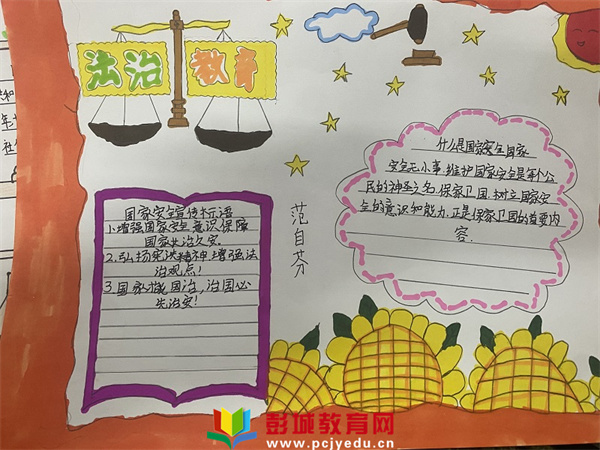 法治教育
什么是国家安全国家
安全无小事,维护国家安全是每个公
民的神圣之名,保家卫国,树立国家安
全的意识和能力,正是保家卫国的重要内
容.
国家安全宣传标语
1.增强国家安全意识,保障
国家长治久安.
2.弘扬宪法精神,增强法
治观点!
3.国家 国治,治国必
先治安!
范自芬
彭城教育网
www.pcjyedu.cn